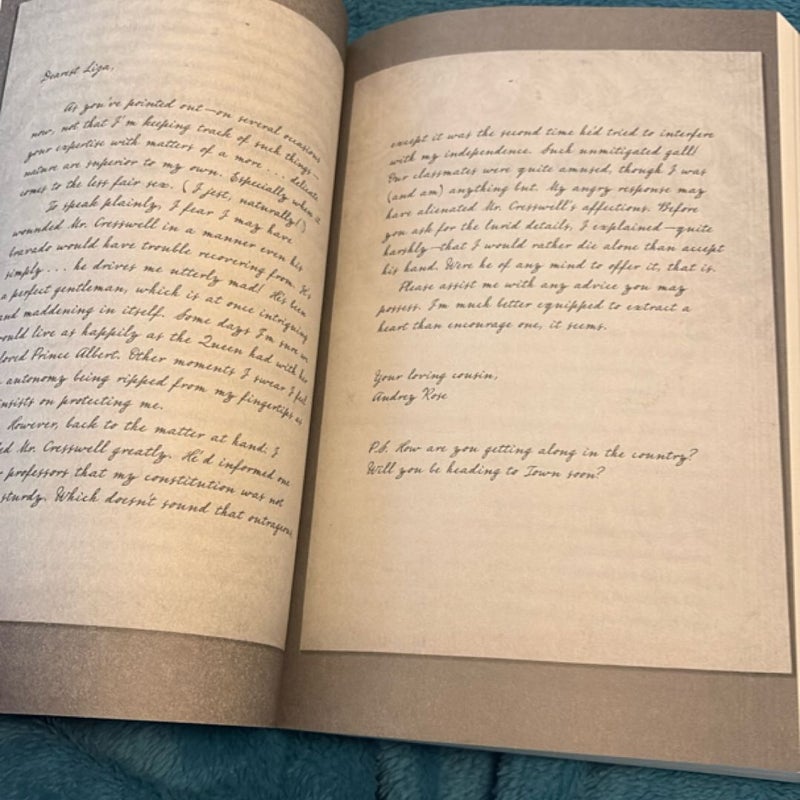 Dearest Liza,
As you've pointed out—on several occasions
now, not that I'm keeping track of such things—
your expertise with matters of a more . . . delicate
nature are superior to my own. Especially when it
comes to the less fair sex. (I jest, naturally!)
To speak plainly, I fear I may have
wounded Mr. Cresswell in a manner even his
bravado would have trouble recovering from. It's
simply . . . he drives me utterly mad! He's been
a perfect gentleman, which is at once intriguing
and maddening in itself. Some days I'm sure we
would live as happily as the Queen had with her
loved Prince Albert. Other moments I swear I feel
autonomy being ripped from my fingertips as
insists on protecting me.
However, back to the matter at hand. I
ed Mr. Cresswell greatly. He'd informed one
professors that my constitution was not
sturdy. Which doesn't sound that outrageous
except it was the second time he'd tried to interfere
with my independence. Such unmitigated gall!
Our classmates were quite amused, though I was
(and am) anything but. My angry response may
have alienated Mr. Cresswell's affections. Before
you ask for the lurid details, I explained—quite
harshly—that I would rather die alone than accept
his hand. Were he of any mind to offer it, that is.
Please assist me with any advice you may
possess. I'm much better equipped to extract a
heart than encourage one, it seems.
Your loving cousin,
Audrey Rose
P.S. How are you getting along in the country?
Will you be heading to Town soon?